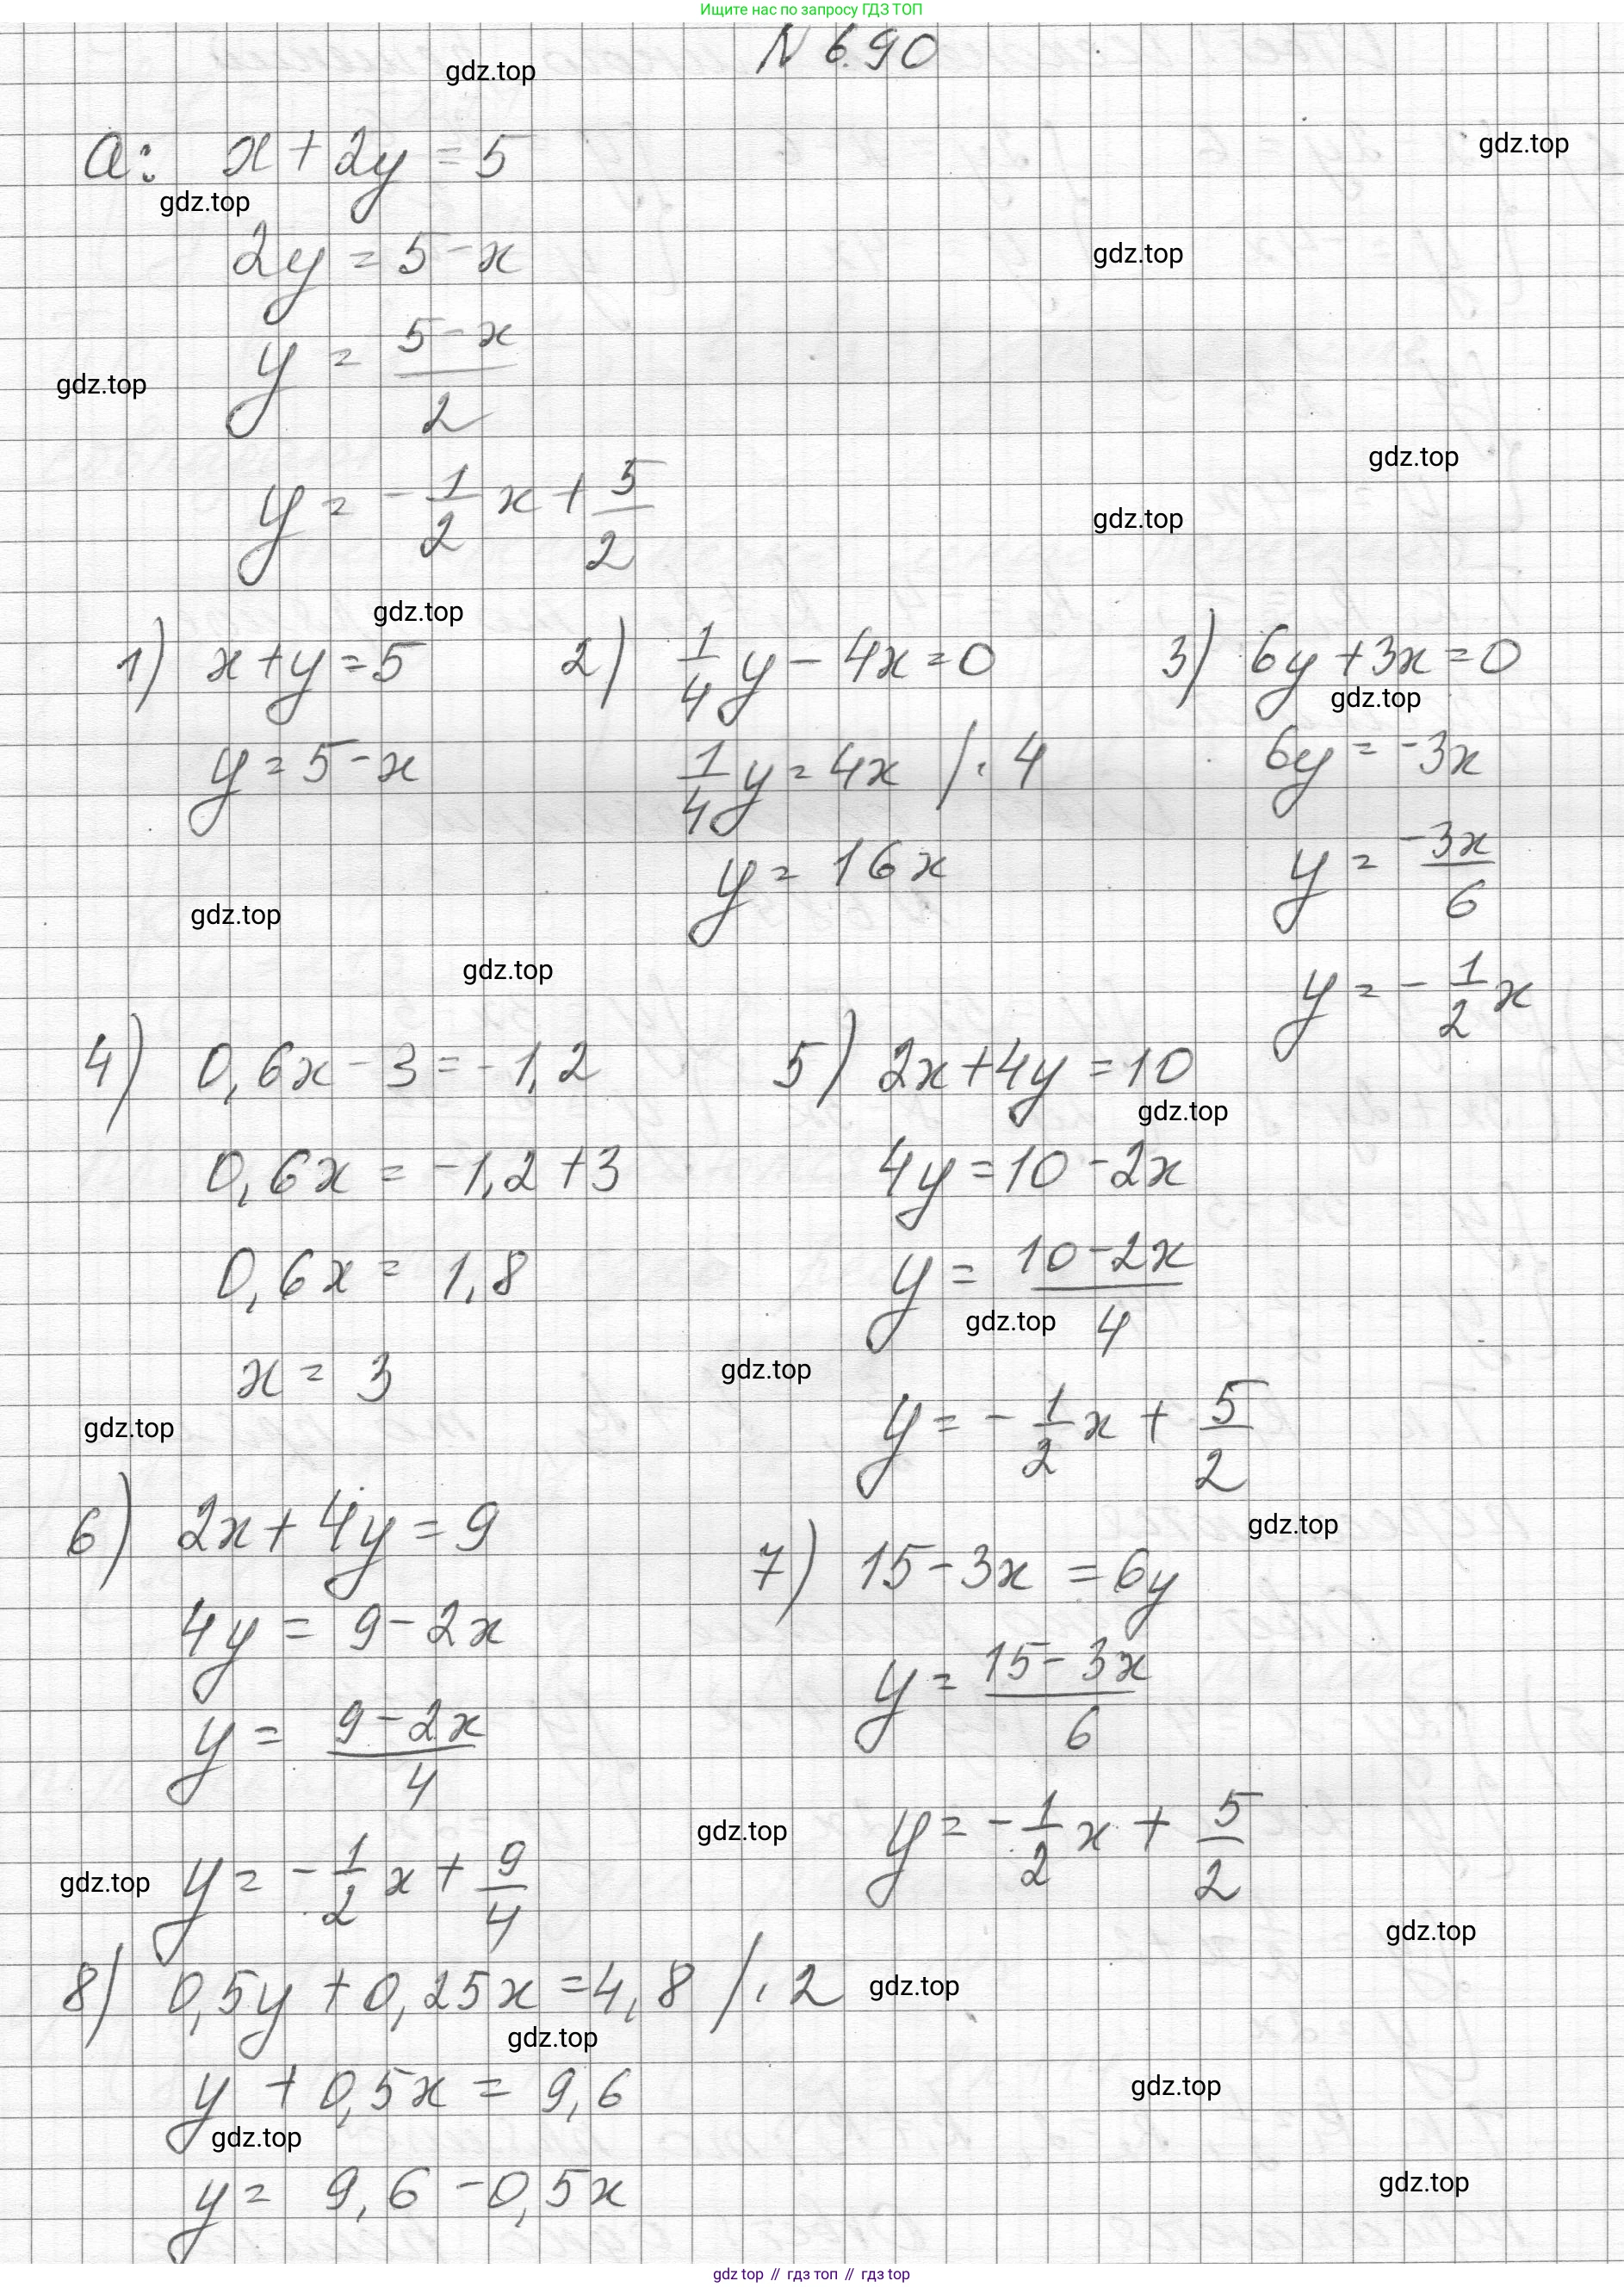 Ищите нас по запросу ГДЗ ТОП
N 6.90
gdz.top
a: x + 2y = 5
gdz.top
gdz.top
2y = 5 - x
gdz.top
y = (5 - x)/2
gdz.top
gdz.top
y = -1/2 x + 5/2
gdz.top
gdz.top
1) x + y = 5
y = 5 - x
2) 1/4 y - 4x = 0
1/4 y = 4x /· 4
y = 16x
3) 6y + 3x = 0
gdz.top
6y = -3x
y = -3x/6
y = -1/2 x
gdz.top
gdz.top
4) 0,6x - 3 = -1,2
0,6x = -1,2 + 3
0,6x = 1,8
x = 3
5) 2x + 4y = 10
gdz.top
4y = 10 - 2x
y = (10 - 2x)/4
gdz.top
gdz.top
y = -1/2 x + 5/2
gdz.top
6) 2x + 4y = 9
4y = 9 - 2x
y = (9 - 2x)/4
y = -1/2 x + 9/4
gdz.top
gdz.top
7) 15 - 3x = 6y
y = (15 - 3x)/6
y = -1/2 x + 5/2
gdz.top
gdz.top
8) 0,5y + 0,25x = 4,8 /· 2
gdz.top
gdz.top
y + 0,5x = 9,6
gdz.top
gdz.top
y = 9,6 - 0,5x
gdz.top
gdz top // гдз топ // гдз top